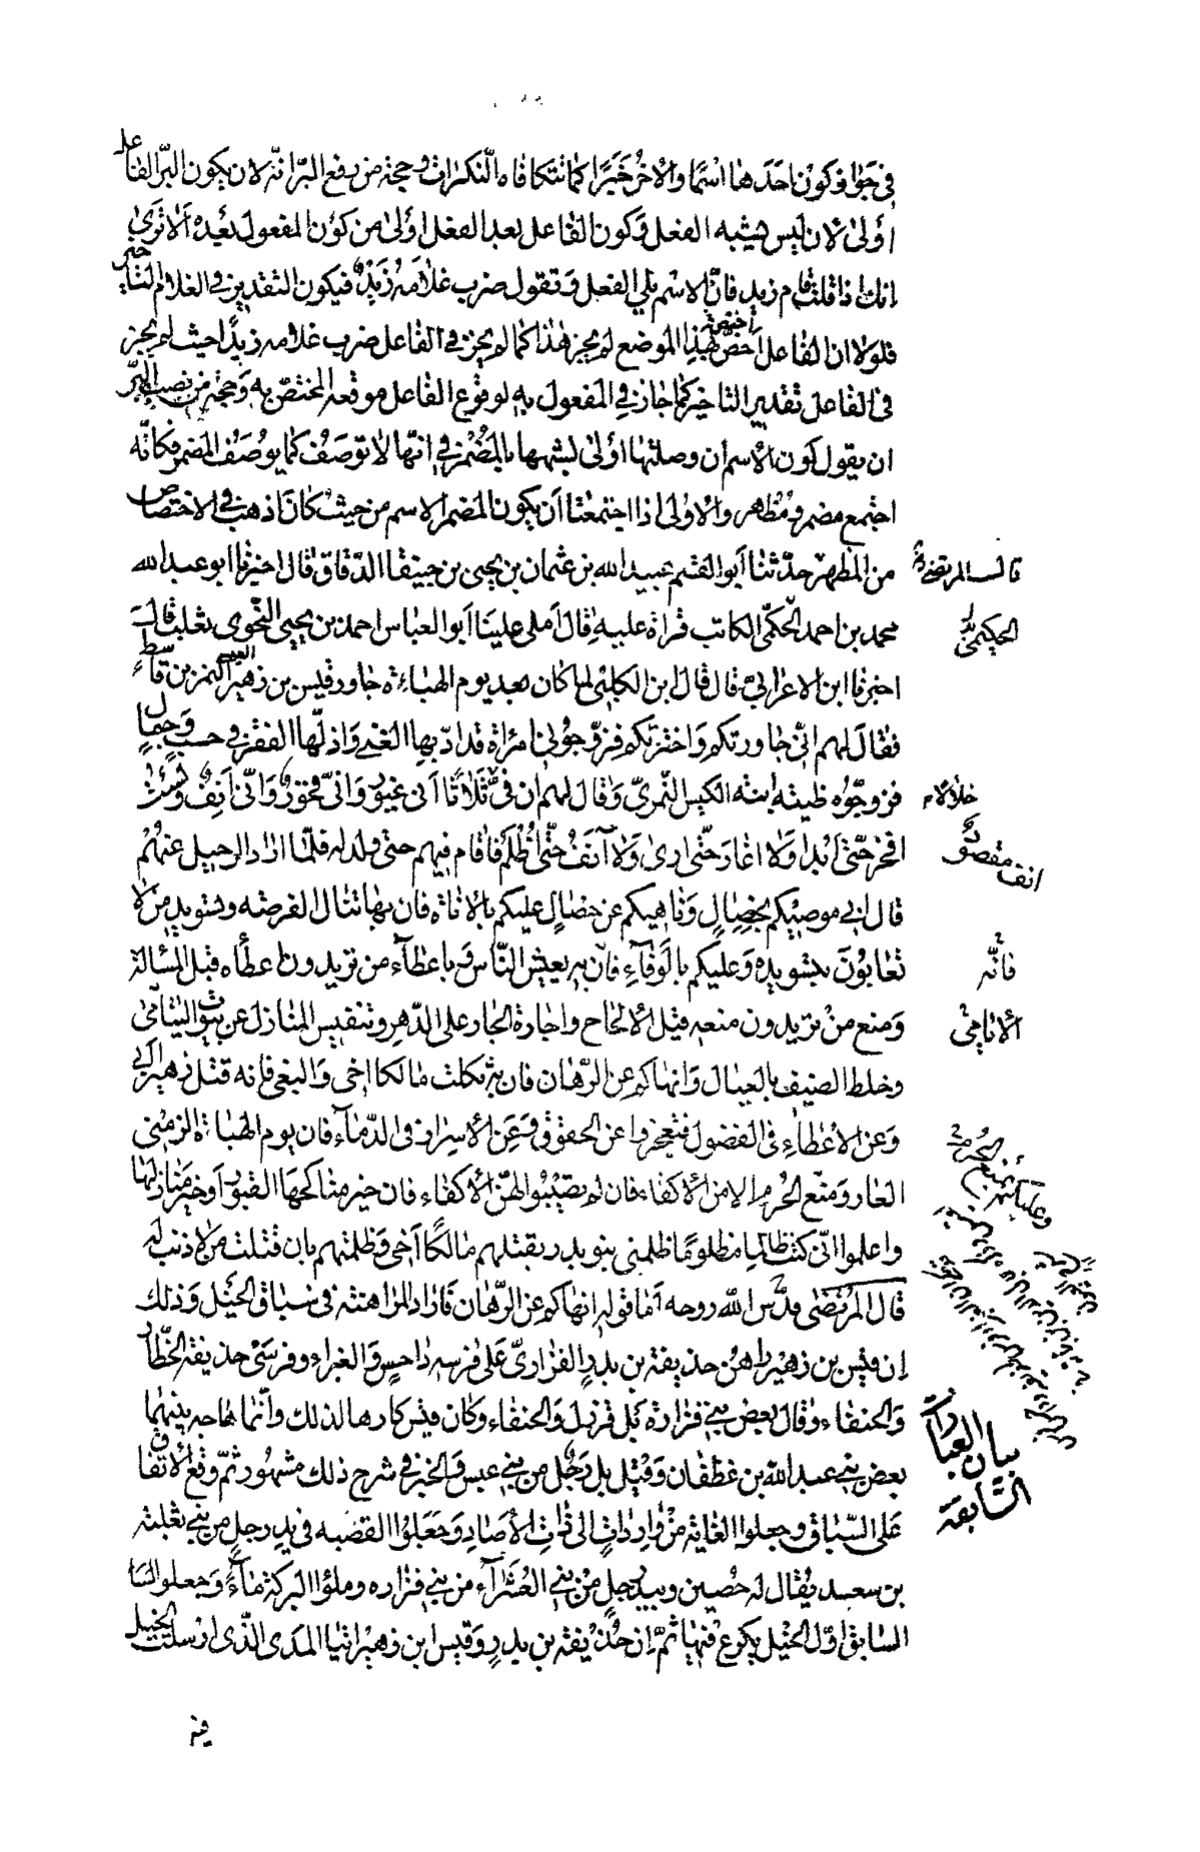 في جواز كون احدهما اسما والاخر خبرا كما تتكافاه النكرات وحجة من رفع البر انه لان يكون البر الفاعل
اولى لان ليس يشبه الفعل وكون الفاعل بعد الفعل اولى من كون المفعول بعده الا ترى
انك اذا قلت قام زيد فان الاسم يلي الفعل وتقول ضرب غلامه زيد فيكون التقدير في الغلام التاخير حتى
فلولا ان الفاعل اخص بهذا الموضع لم يجز هذا كما لم يجز في الفاعل ضرب غلامه زيدا حيث لم يجز
في الفاعل تقدير التاخير كما جاز في المفعول به لوقوع الفاعل موقعه المختص به وحجة من نصب البر
ان يقول كون الاسم ان وصلتها اولى لشبهها بالمضمر في انها لا توصف كما لا يوصف المضمر فكانه
اجتمع مضمر ومظهر والاولى اذا اجتمعتا ان يكون المضمر الاسم من حيث كان اذهب في الاختصاص
من المظهر حدثنا ابو القسم عبيد الله بن عثمان بن يحيى بن جنيقا الدقاق قال اخبرنا ابو عبد الله
قال المرتضى
محمد بن احمد الحكمي الكاتب قراة عليه قال املى علينا ابو العباس احمد بن يحيى النحوي ثعلب قال
الحكيمي
اخبرنا ابن الاعرابي قال قال ابن الكلبي لما كان بعد يوم الهباءة جاور قيس بن زهير النمر بن قاسط
فقال لهم اني جاورتكم واخترتكم فزوجوني امراة قد ادبها الغنى واذلها الفقر في حسب وجمال
فزوجوه ظبية ابنة الكيس النمري وقال لهم ان في ثلاثا اني غيور واني فخور واني انف ولست
افخر حتى ابدا ولا اغار حتى ارى ولا آنف حتى اظلم فاقام فيهم حتى ولد له فلما اراد الرحيل عنهم
انف مقصور
قال اني موصيكم بخصال وناهيكم عن خصال عليكم بالاناة فان بها تنال الفرصة وتسويد من لا
تعابون بتسويده وعليكم بالوفاء فان به يعيش الناس وباعطاء من تريدون اعطاه قبل المسالة
فانه
ومنع من تريدون منعه قبل الالحاح واجارة الجار على الدهر وتنفيس المنازل عن بيوت اليتامى
الايامى
وخلط الضيف بالعيال وانهاكم عن الرهان فان به ثكلت مالكا اخي والبغي فانه قتل زهيرا ابي
وعن الاعطاء في الفضول فتعجزوا عن الحقوق وعن الاسراف في الدماء فان يوم الهباة الزمني
العار ومنع الحرم الا من الاكفاء فان لم تصيبوا لهن الاكفاء فان خير مناكحها القبور او خير منازلها
واعلموا اني كنت ظالما مظلوما ظلمني بنو بدر بقتلهم مالكا اخي وظلمتهم بان قتلت من لا ذنب له
قال المرتضى قدس الله روحه اما قوله انهاكم عن الرهان فاراد المراهنة في سباق الخيل وذلك
ان قيس بن زهير راهن حذيفة بن بدر الفزاري على فرسيه داحس والغبراء وفرسي حذيفة الخطار
والحنفاء وقال بعض بني فزارة بل قرزل والحنفاء وكان قيس كارها لذلك وانما هاجه بينهما
بيان العبارة
السابقة
بعض بني عبد الله بن غطفان وقيل بل رجل من بني عبس والخبر في شرح ذلك مشهور ثم وقع الاتفاق
على السباق وجعلوا الغاية من واردات الى ذات الاصاد وجعلوا القصبة في يد رجل من بني ثعلبة
بن سعد يقال له حصين وبيد رجل من بني العشراء من بني فزاره وملؤا البركة ماء وجعلوا السا
السابق اول الخيل يكرع فيها ثم ان حذيفة بن بدر وقيس ابن زهير اتيا المدى الذي ارسلت الخيل